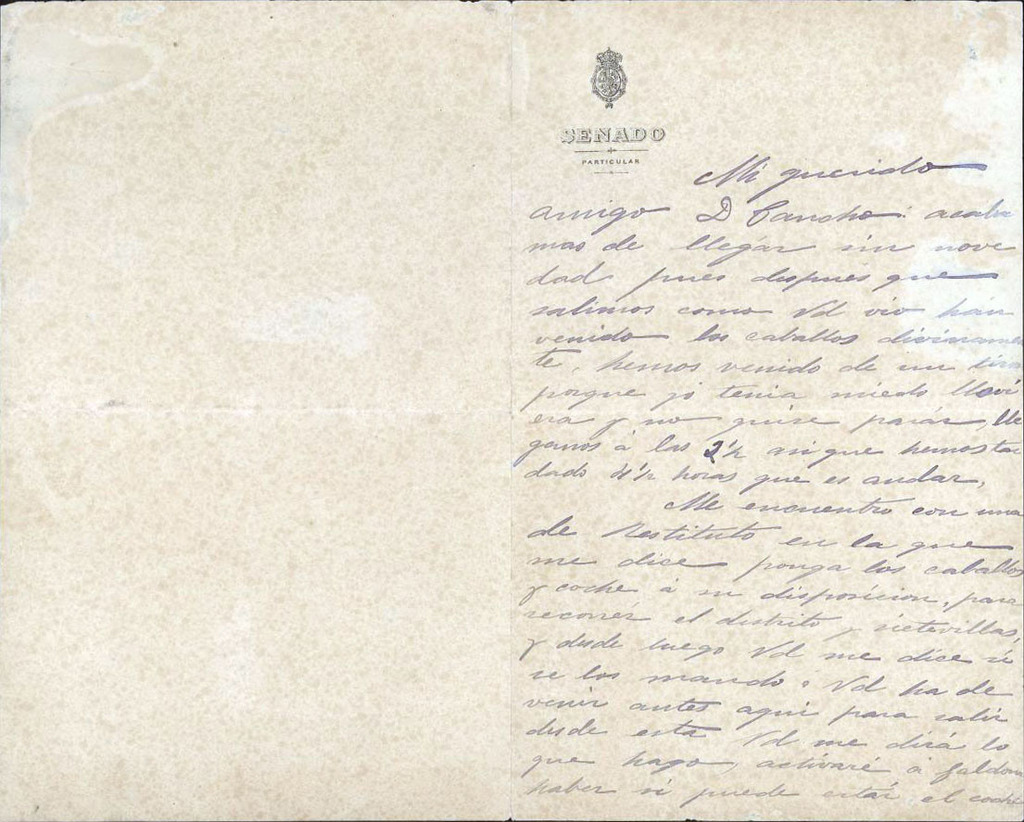 SENADO
PARTICULAR
Mi querido
amigo D Cancho: acaba
mos de llegar sin nove
dad pues despues que
salimos como Vd vio hán
venido los caballos divinamen
te, hemos venido de un tiro
porque yo tenia miedo llovi
era y no quise parár, lle
gamos á las 2½ asi que hemos tar
dado 4½ horas que es andar,
Me encuentro con una
de Restituto en la que
me dice ponga los caballos
y coche á su disposicion, para
recorrér el distrito y sietevillas,
y desde luego Vd me dice si
se los mando, Vd ha de
venir antes aqui para salir
desde esta Vd me dirá lo
que hago, activaré á
haber si puede estár el coche